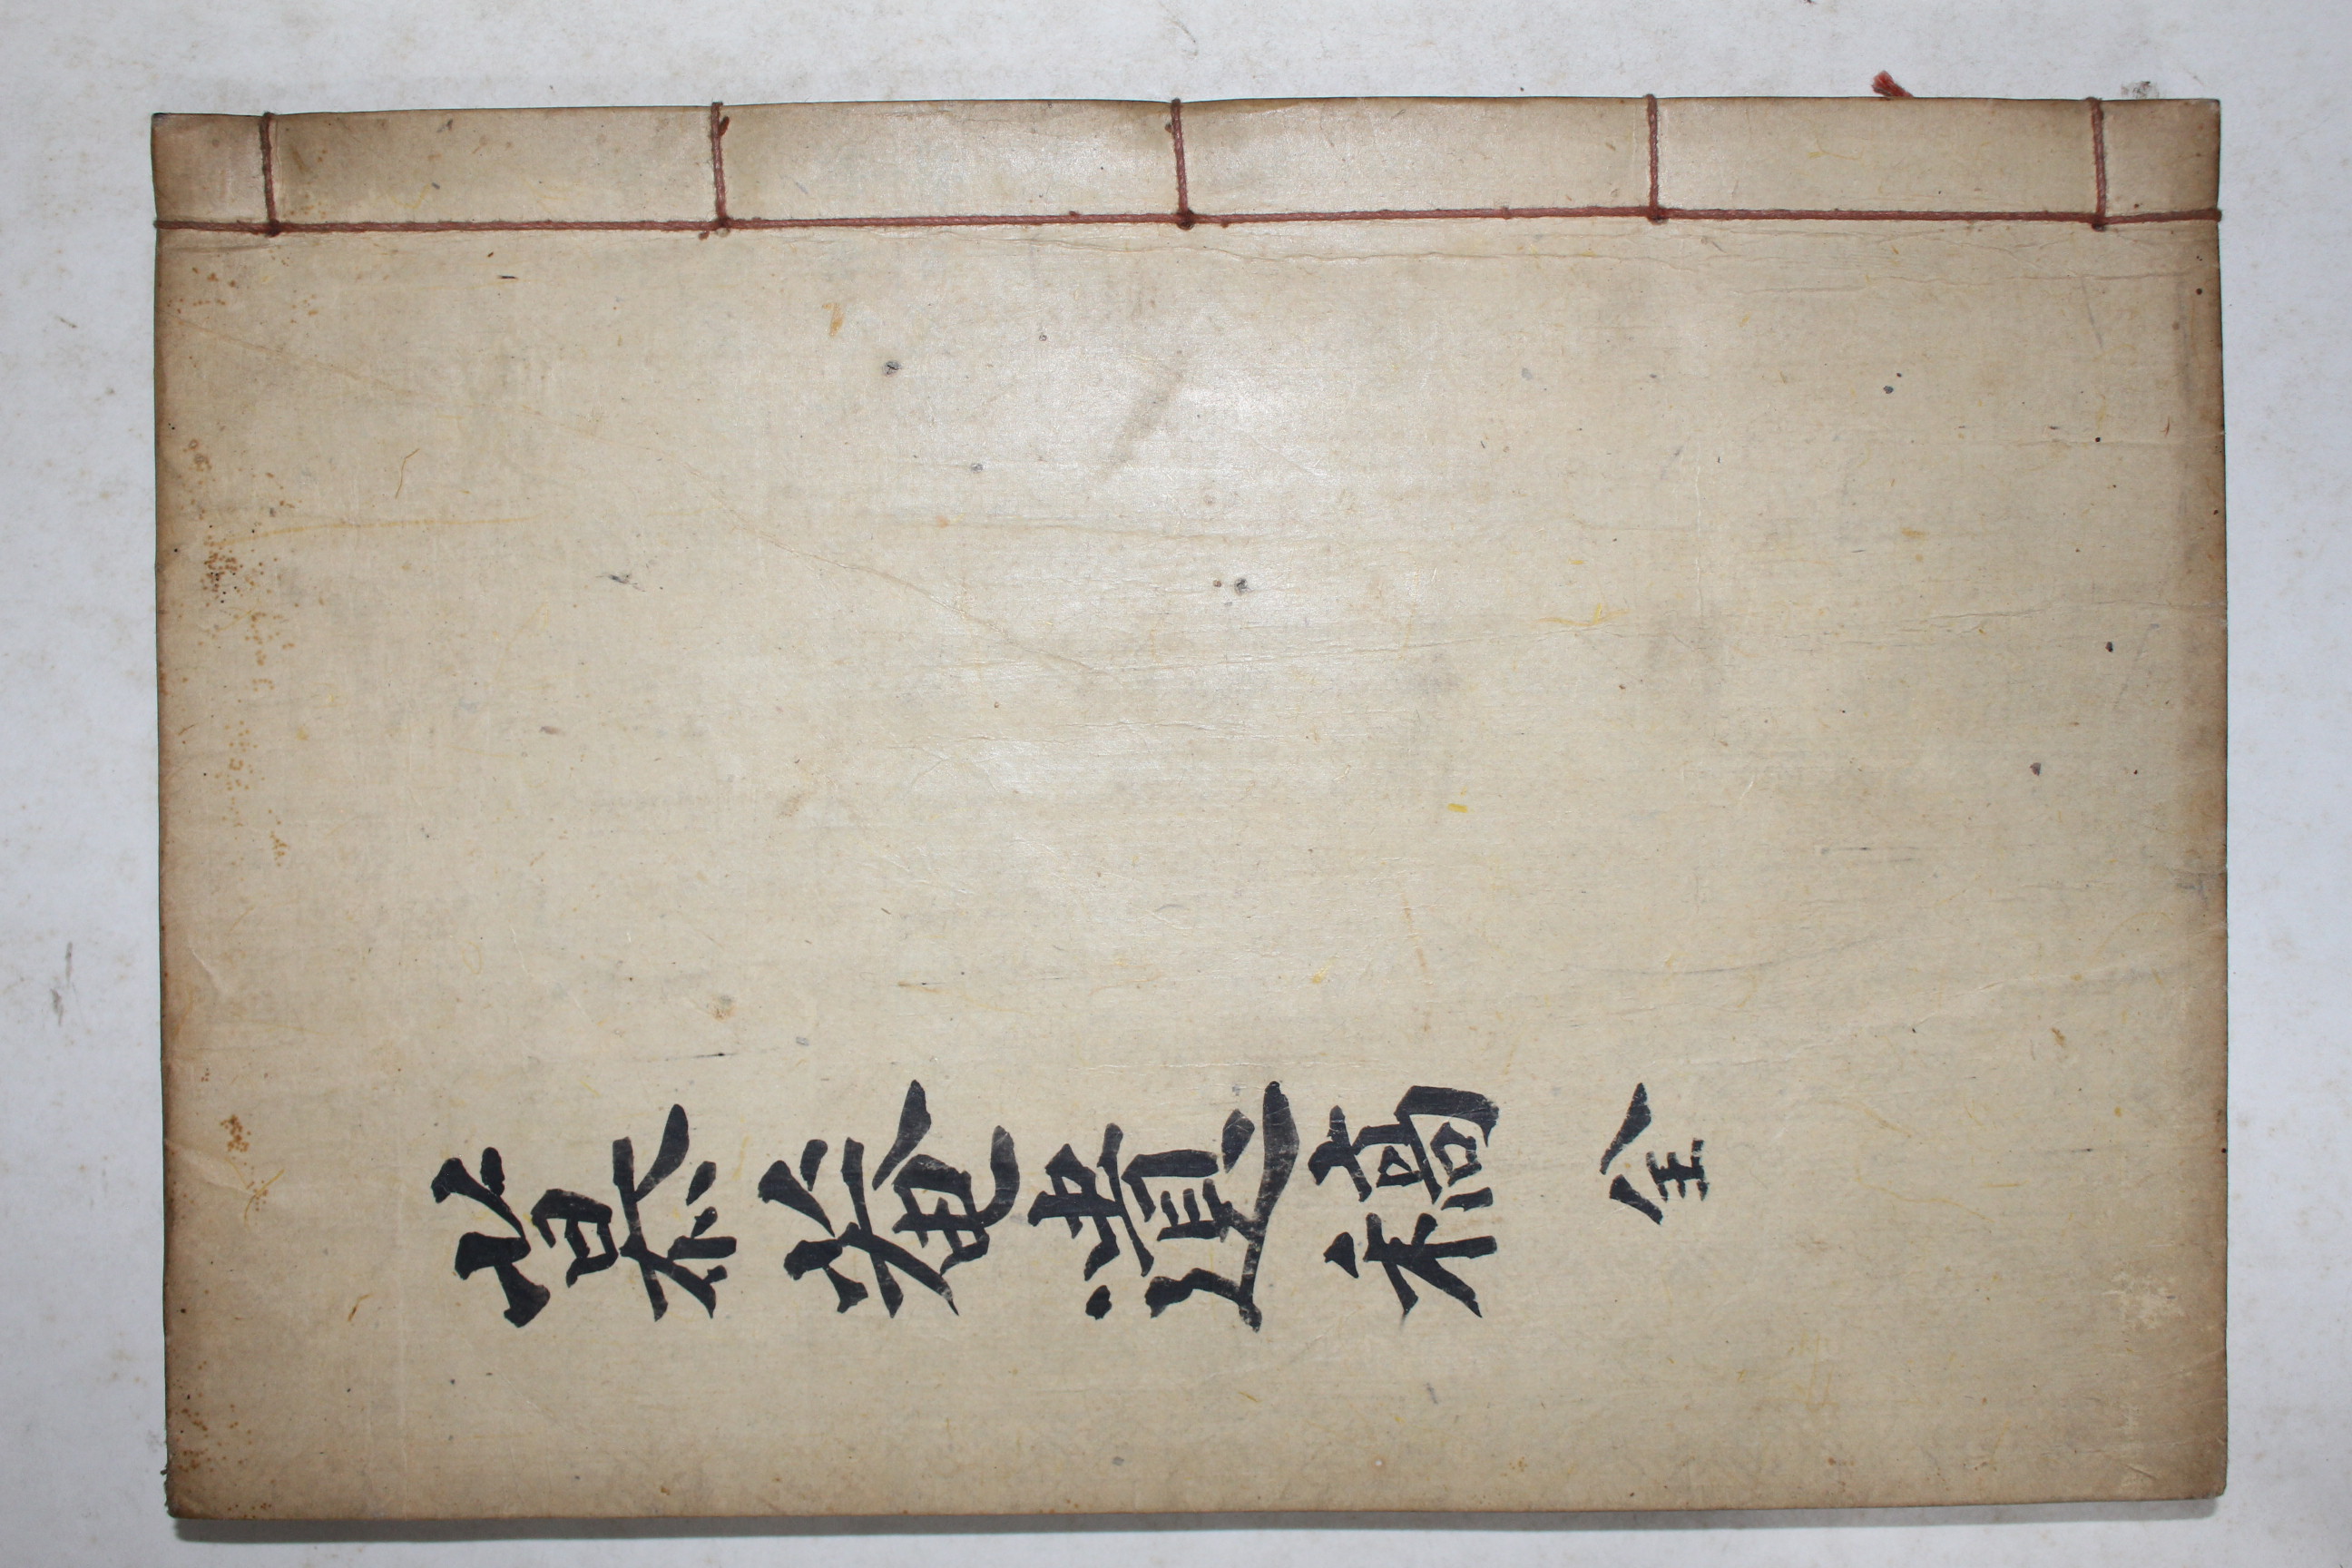 慕菴遺稿 全